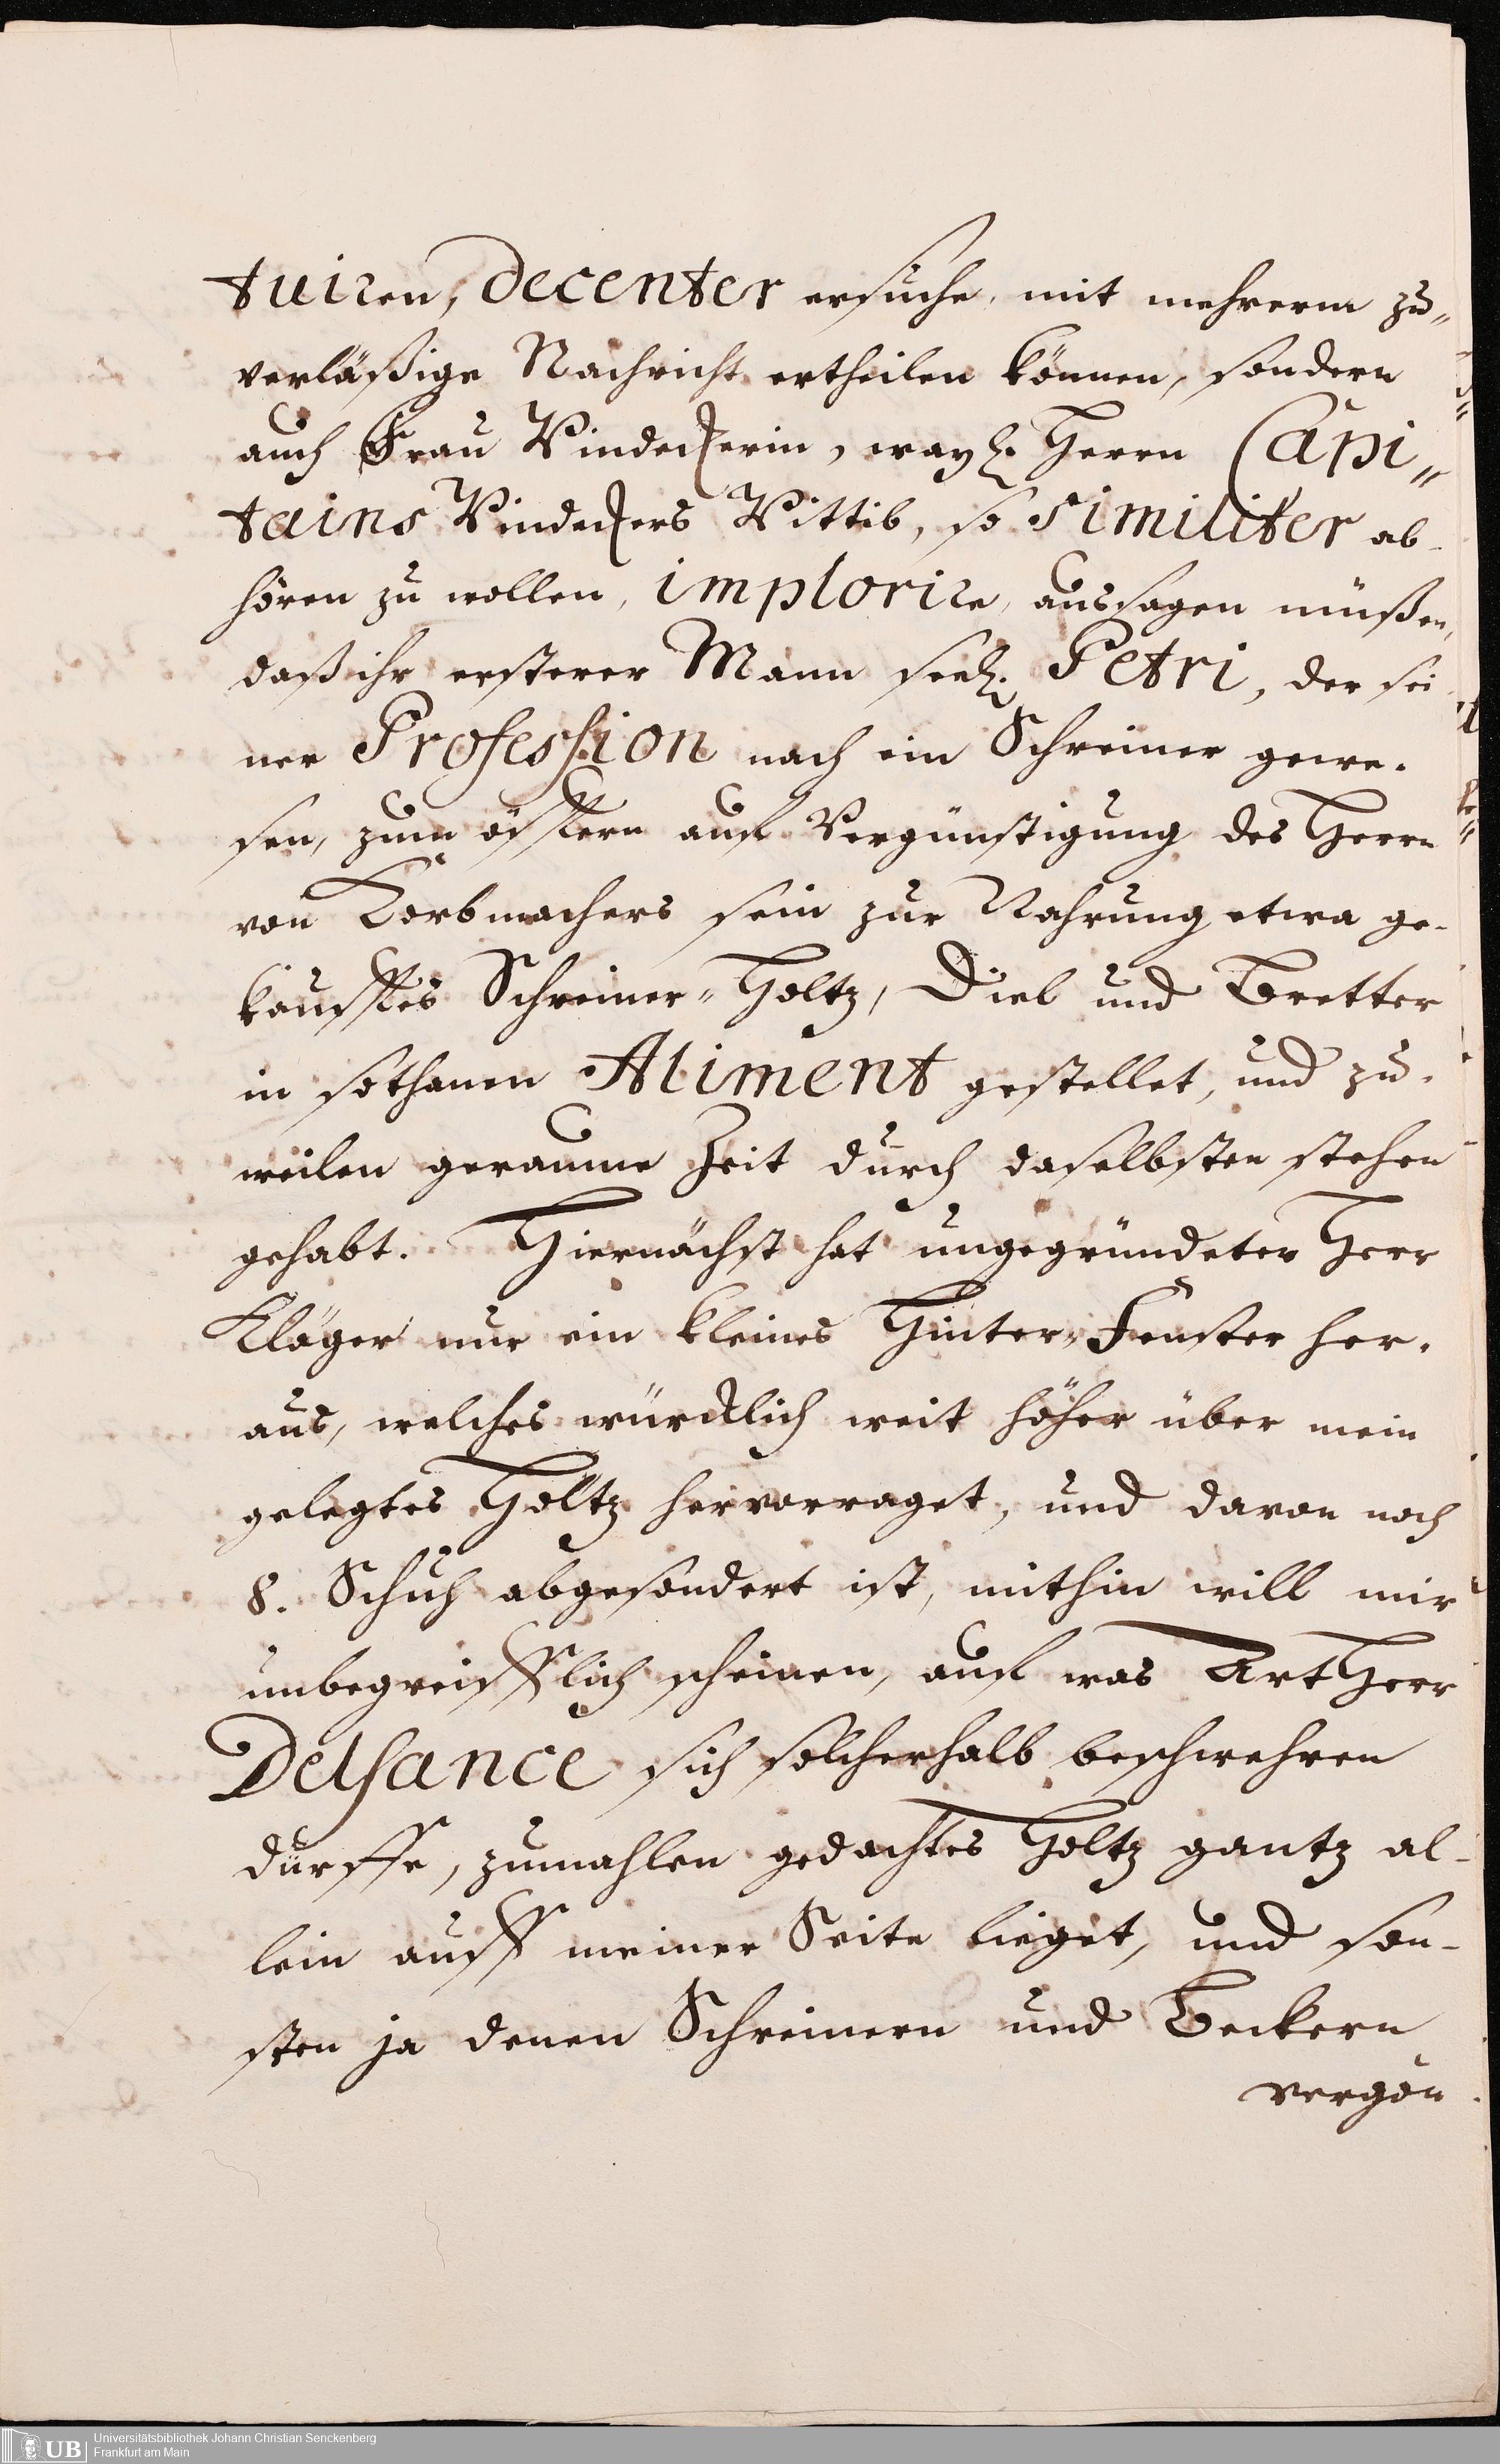 tuiren, decenter ersuche, mit mehrerm zu„
verläßige Nachricht ertheilen können, sondern
auch Frau Vindeckerin, wayl. Herrn Capi„
tains Vindeckers Wittib, so similiter ab-
hören zu wollen, implorire, aussagen müßen,
daß ihr ersterer Mann seel. Petri, der sei-
ner Profession nach ein Schreiner gewe-
sen, zum öfftern auf Vergünstigung des Herrn
von Korbmachers sein zur Nahrung etwa ge-
kaufftes Schreiner-Holtz, Diel und Bretter
in sothanen Aliment gestellet, und zu-
weilen geraume Zeit durch daselbsten stehen
gehabt. Hiernächst hat ungegründeter Herr
Kläger nur ein kleines Hinter-Fenster her-
aus, welches würcklich weit höher über mein
gelegtes Holtz hervorraget, und davon noch
8. Schuh abgesondert ist, mithin will mir
unbegreifflich scheinen, auf was Art Herr
Delsance sich solcherhalb beschwehren
dürffe, zumahlen gedachtes Holtz gantz al-
lein auff meiner Seite lieget, und son-
sten ja denen Schreinern und Beckern
vergön-
UB Universitätsbibliothek Johann Christian Senckenberg
Frankfurt am Main